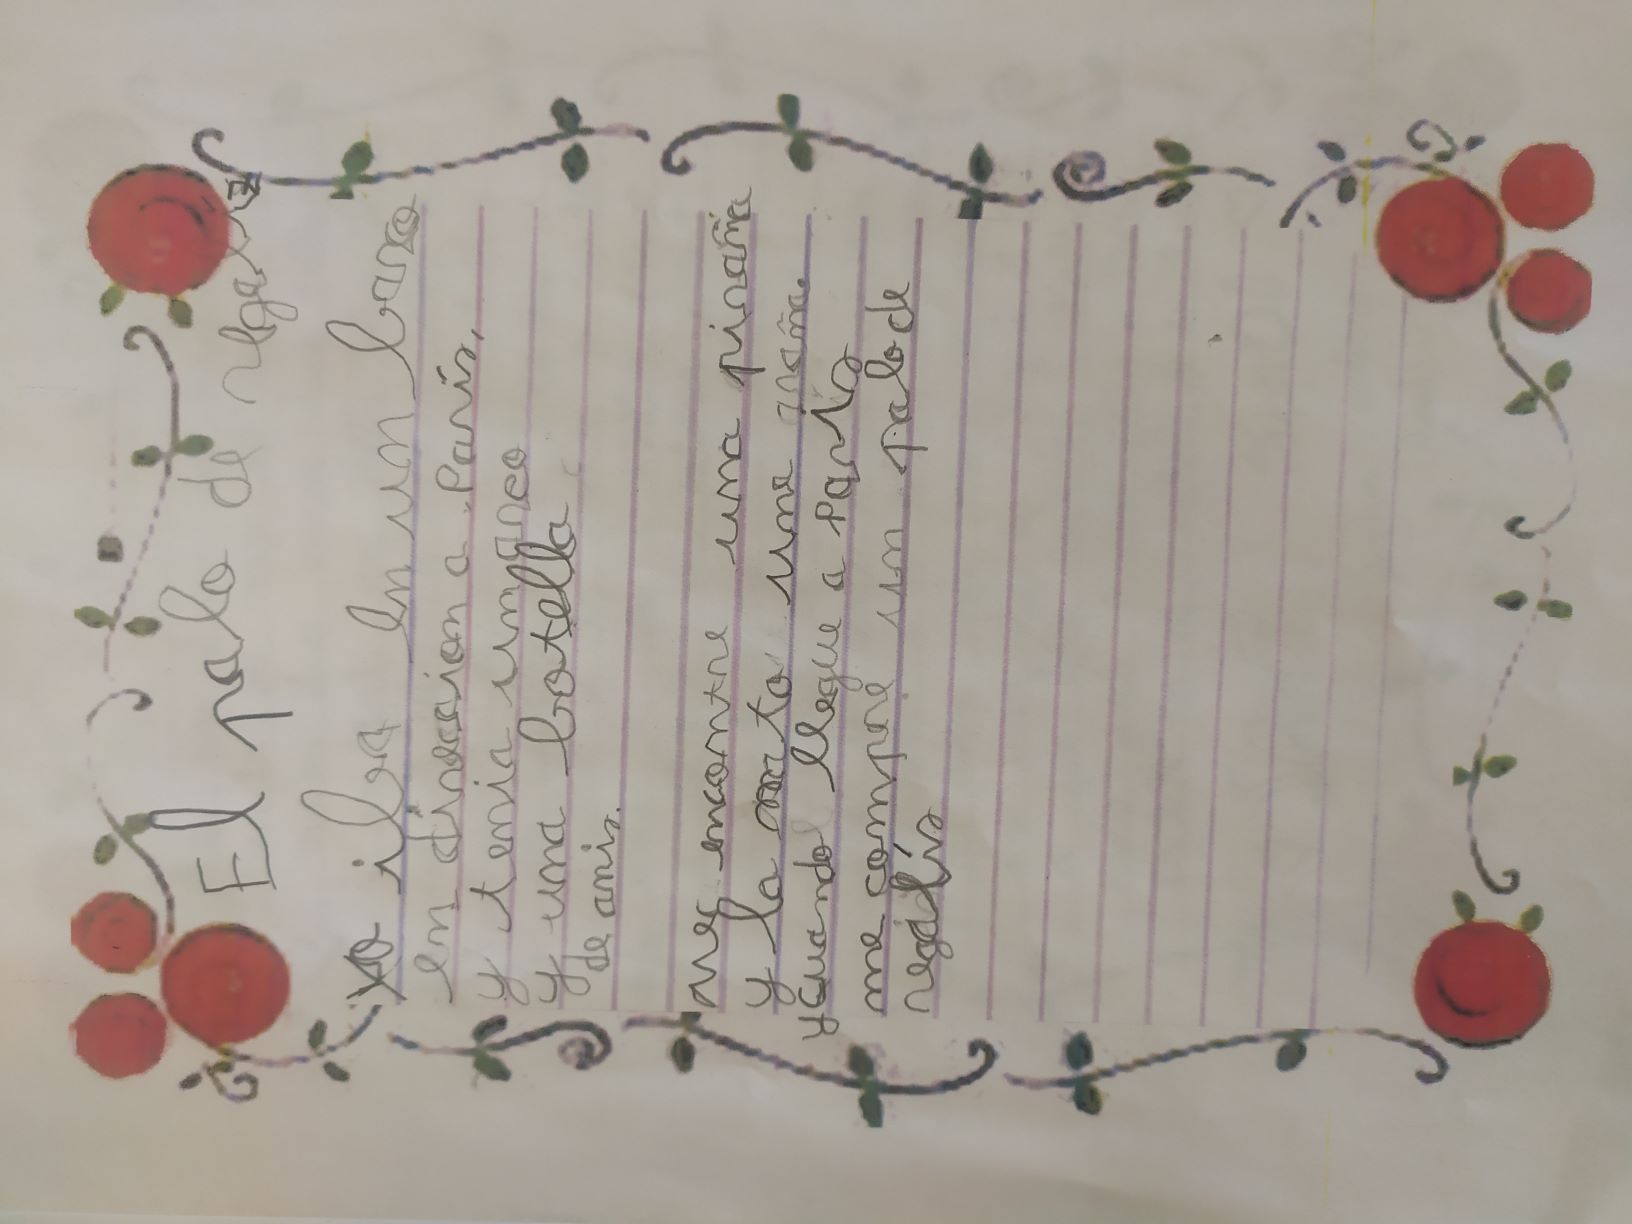 El palo de regaliz
yo iba en un barco
en direccion a Paris,
y tenia un
y una botella
de anis.
Me encontre una piraña
y la mato una araña.
y cuando llegue a París
me compre un palo de
regaliz